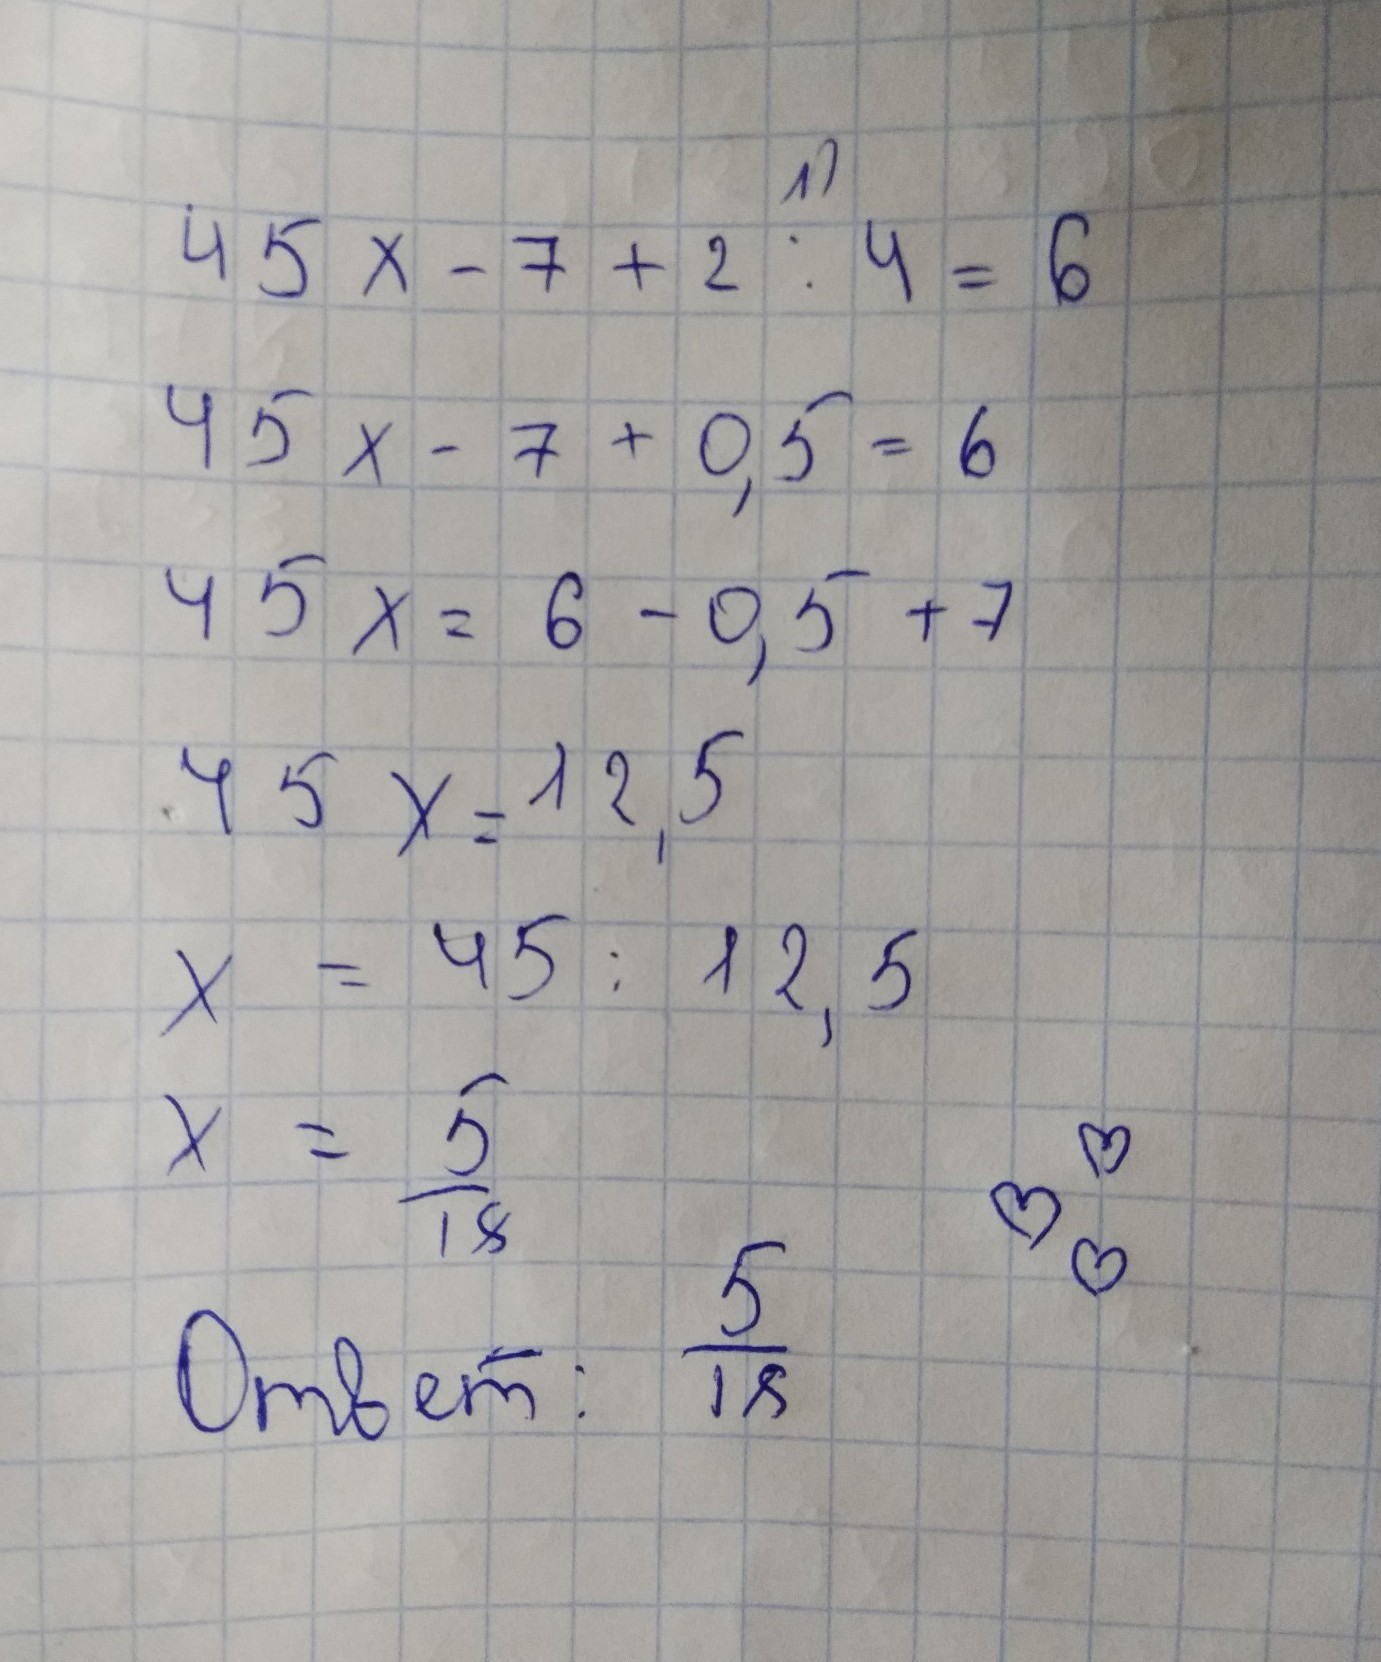 1)
45x - 7 + 2 : 4 = 6
45x - 7 + 0,5 = 6
45x = 6 - 0,5 + 7
45x = 12,5
x = 45 : 12,5
x = 5/18
Ответ: 5/18